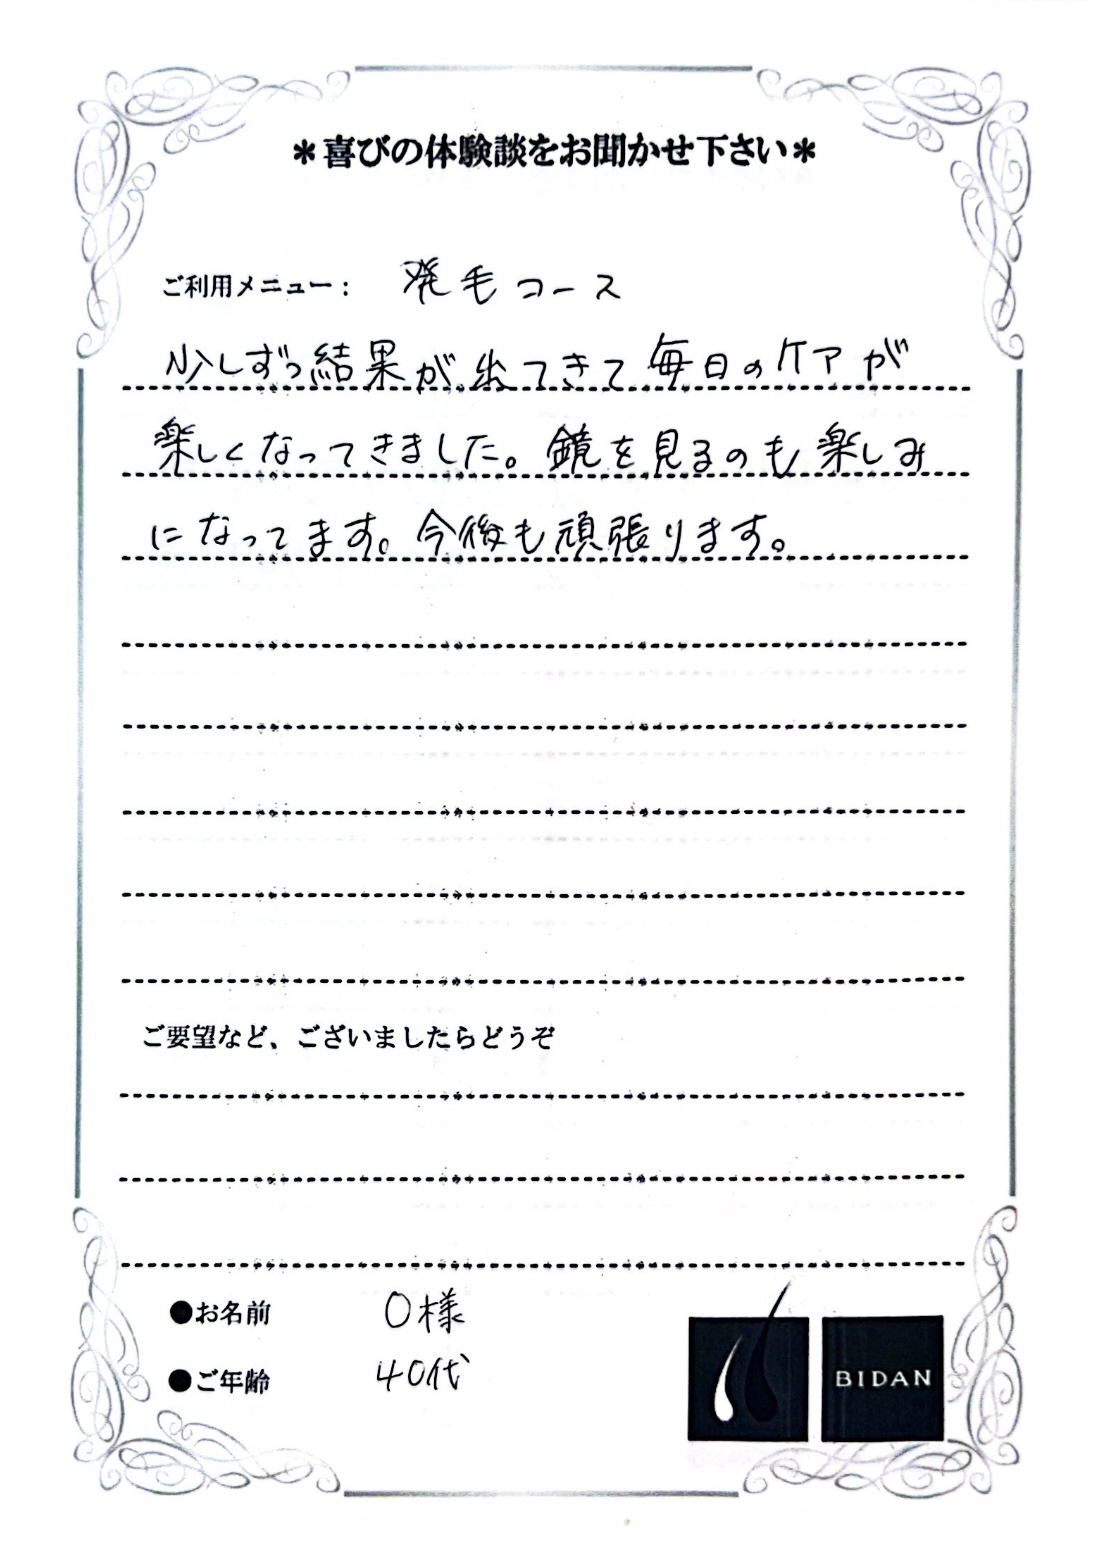 ＊喜びの体験談をお聞かせ下さい＊
ご利用メニュー： 発毛コース
少しずつ結果が出てきて毎日のケアが
楽しくなってきました。鏡を見るのも楽しみ
になってます。今後も頑張ります。
ご要望など、ございましたらどうぞ
●お名前 O様
●ご年齢 40代
BIDAN